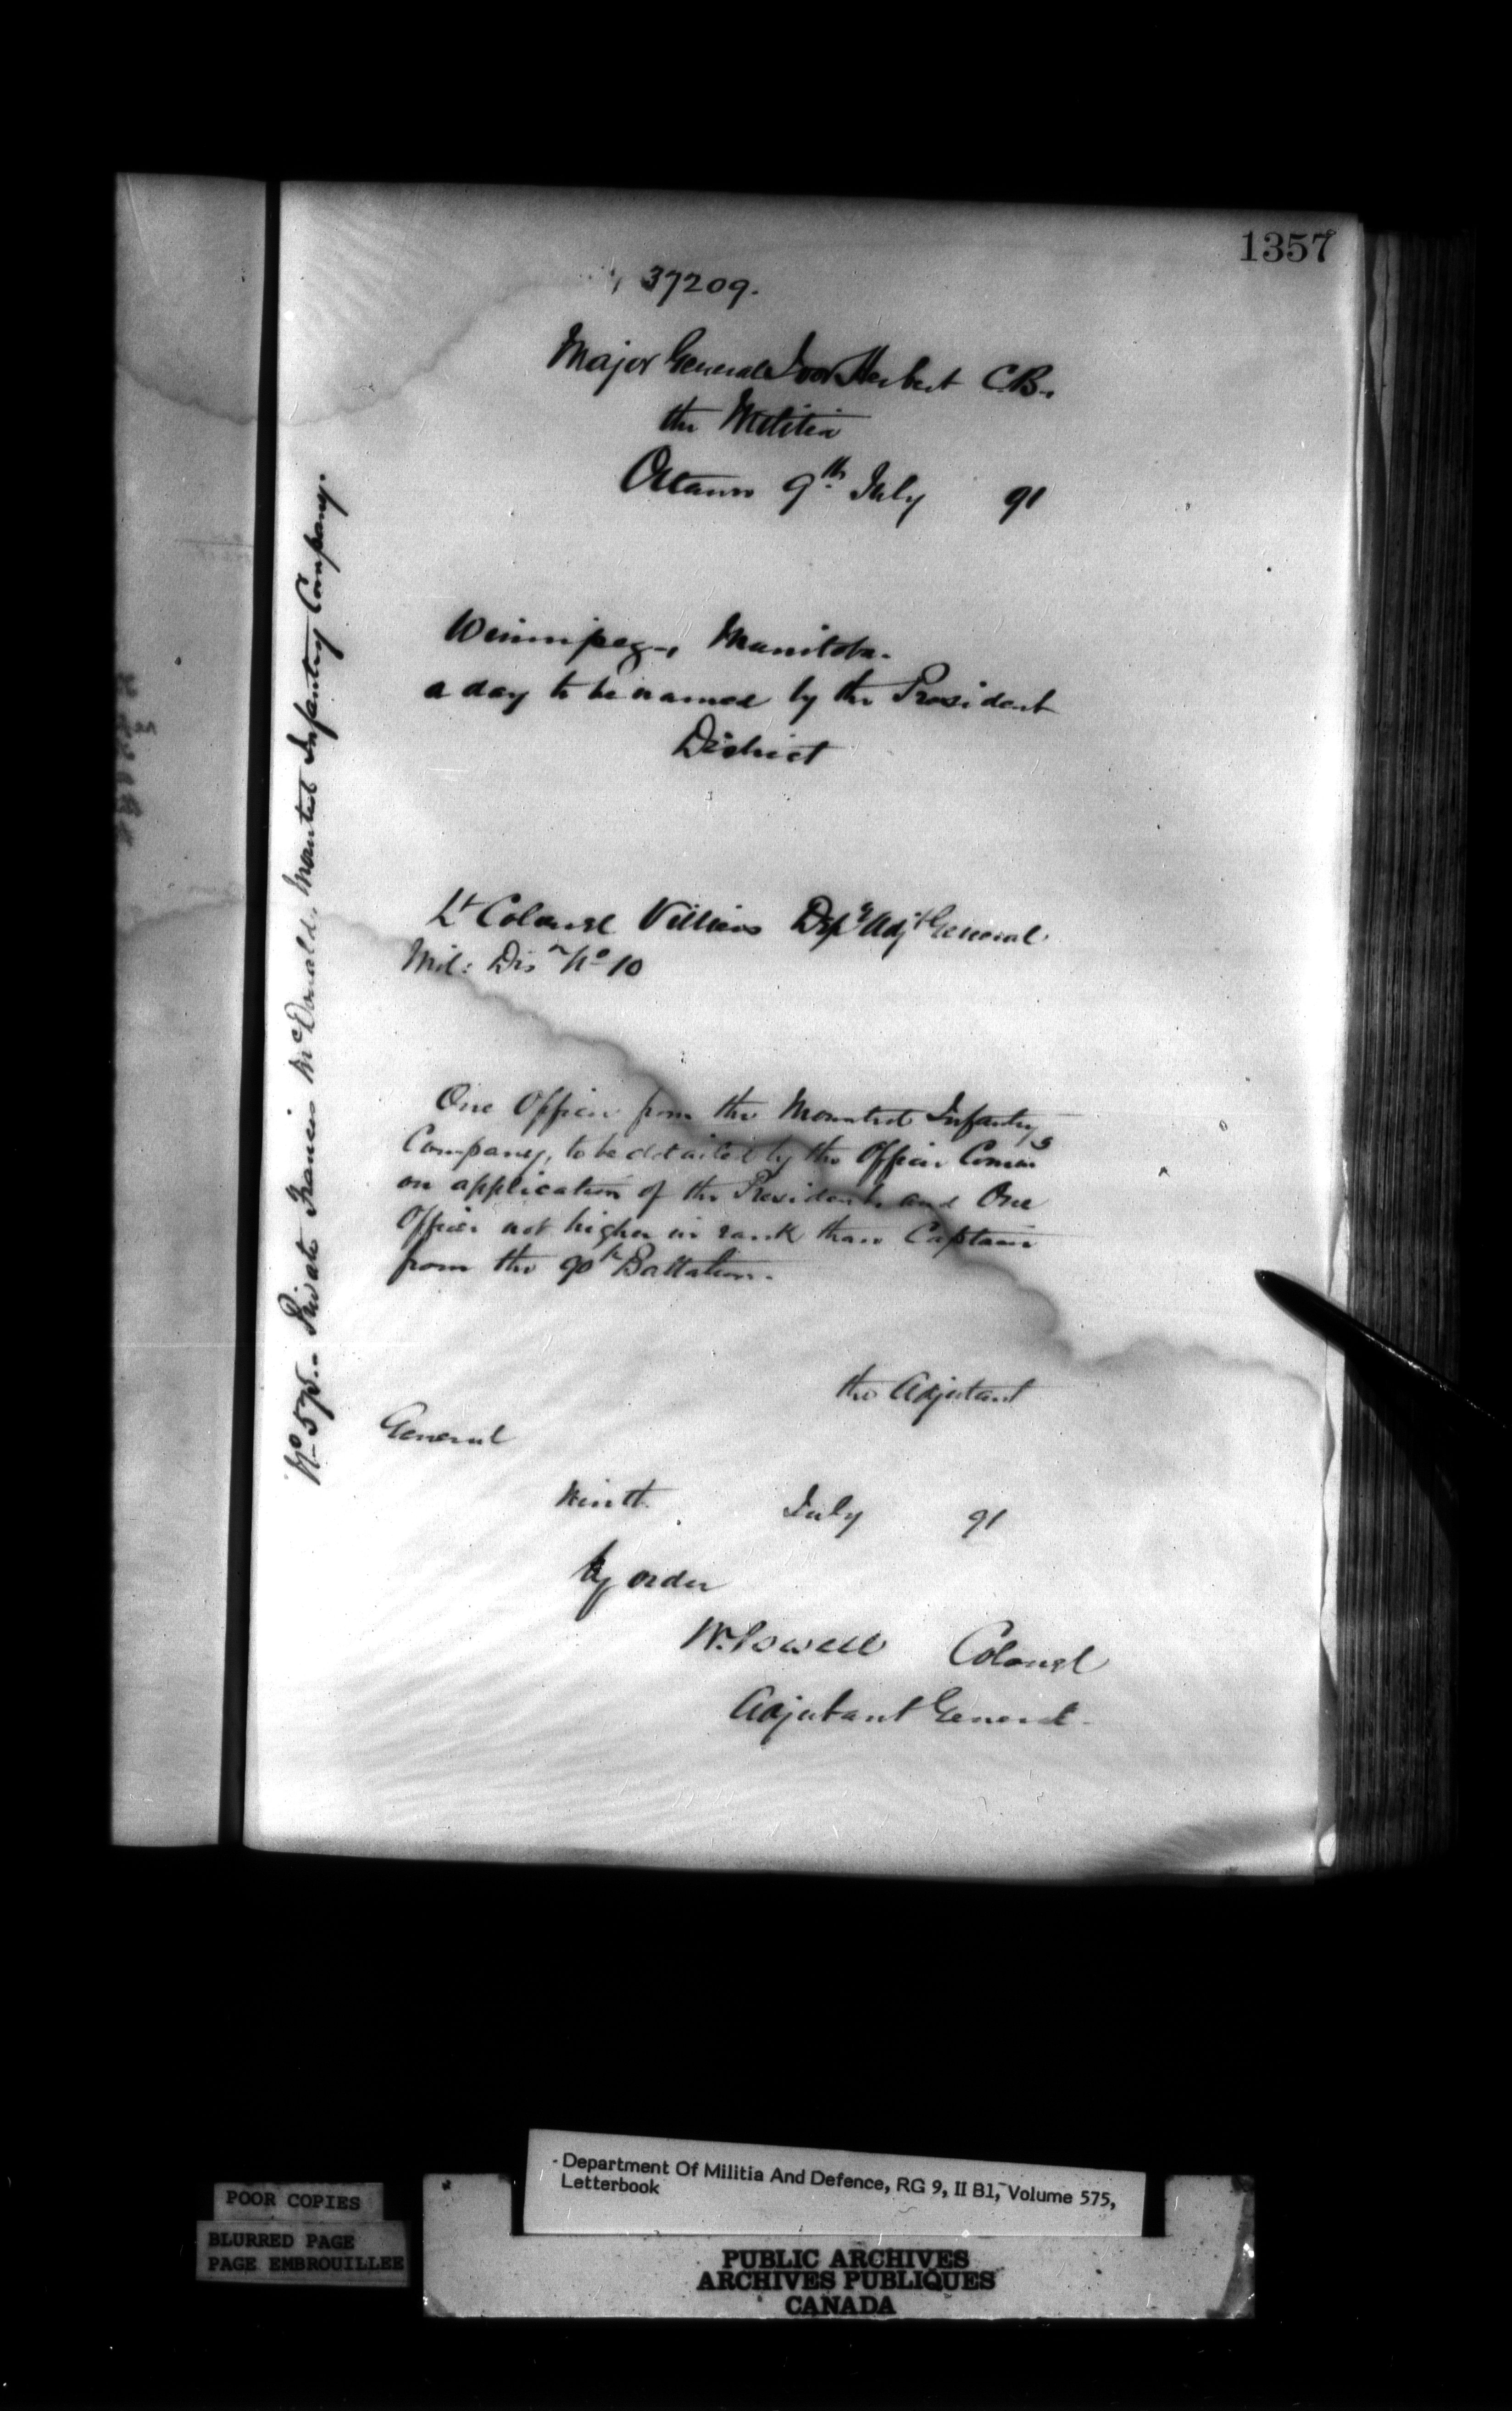 1357
37209.
Major General Ivor Herbert C.B.
the Militia
Ottawa 9th July 91
Winnipeg, Manitoba.
a day to be named by the President
District
Lt Colonel Villiers Depy Adjt General
Mil: Dis No 10
One Officer from the Mounted Infantry
Company, to be detailed by the Officer Comdg
on application of the President, and One
Officer not higher in rank than Captain
from the 90th Battalion.
the Adjutant
General
Ninth July 91
by order
W. Powell Colonel
Adjutant General
Private Francis McDonald, Mounted Infantry Company.
- Department Of Militia And Defence, RG 9, II B1, Volume 575,
Letterbook
POOR COPIES
BLURRED PAGE
PAGE EMBROUILLEE
PUBLIC ARCHIVES
ARCHIVES PUBLIQUES
CANADA